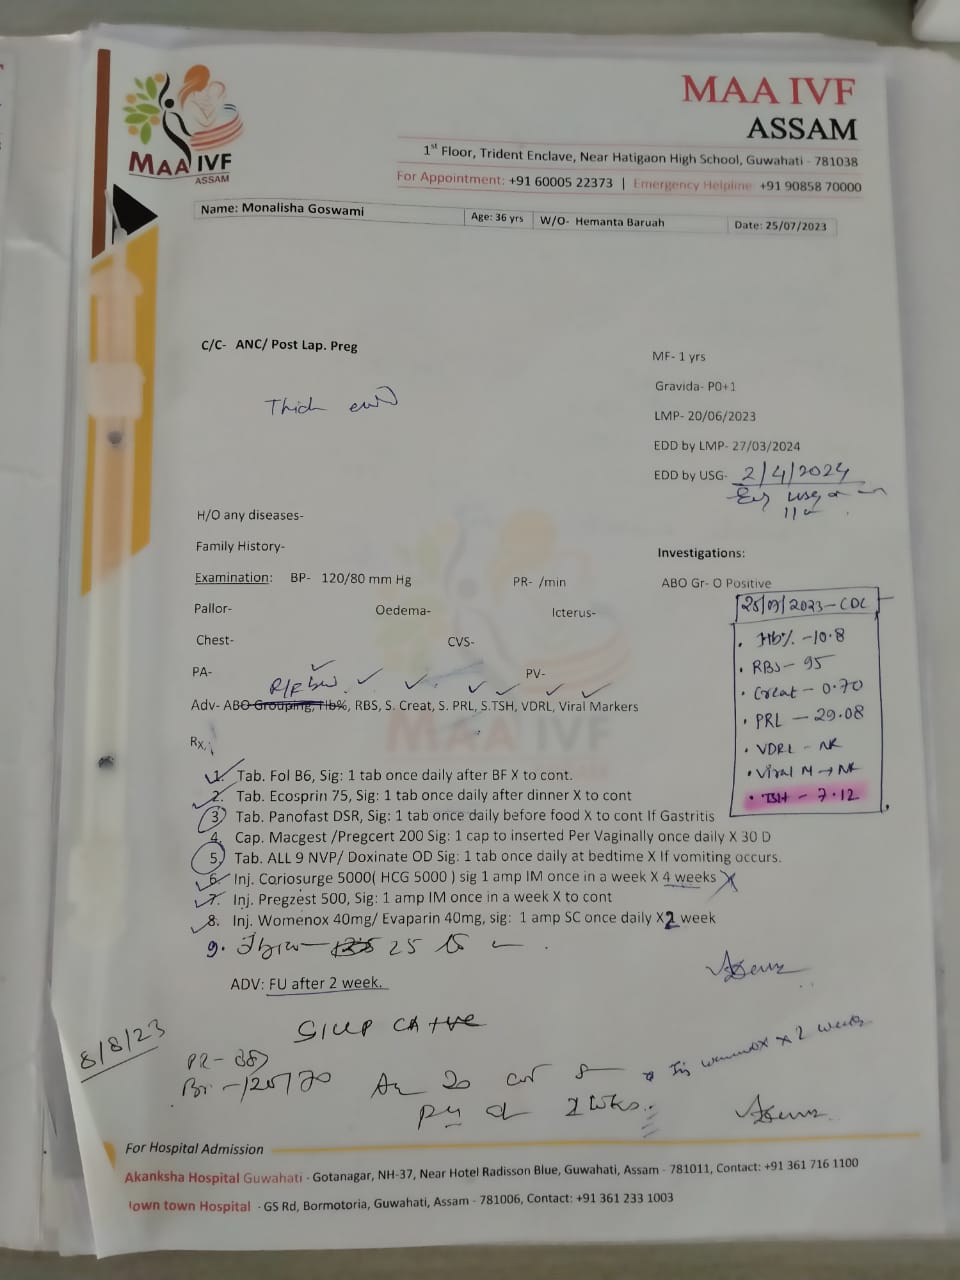 MAA IVF
ASSAM
MAA IVF
ASSAM
1st Floor, Trident Enclave, Near Hatigaon High School, Guwahati - 781038
For Appointment: +91 60005 22373 | Emergency Helpline +91 90858 70000
Name: Monalisha Goswami Age: 36 yrs W/O- Hemanta Baruah Date: 25/07/2023
C/C- ANC/ Post Lap. Preg
Thick
MF- 1 yrs
Gravida- P0+1
LMP- 20/06/2023
EDD by LMP- 27/03/2024
EDD by USG- 2/4/2024
usg
H/O any diseases-
Family History-
Examination: BP- 120/80 mm Hg PR- /min
Pallor- Oedema- Icterus-
Chest- CVS-
PA- PV-
Investigations:
ABO Gr- O Positive
25/07/2023 - CDC
• Hb% - 10.8
• RBS - 95
• Creat - 0.70
• PRL - 29.08
• VDRL - NR
• Viral M → NR
• TSH - 7.12
Adv- ABO Grouping, Hb%, RBS, S. Creat, S. PRL, S.TSH, VDRL, Viral Markers
MAA IVF
Rx,
1. Tab. Fol B6, Sig: 1 tab once daily after BF X to cont.
2. Tab. Ecosprin 75, Sig: 1 tab once daily after dinner X to cont
3. Tab. Panofast DSR, Sig: 1 tab once daily before food X to cont If Gastritis
4. Cap. Macgest /Pregcert 200 Sig: 1 cap to inserted Per Vaginally once daily X 30 D
5. Tab. ALL 9 NVP/ Doxinate OD Sig: 1 tab once daily at bedtime X If vomiting occurs.
6. Inj. Coriosurge 5000( HCG 5000 ) sig 1 amp IM once in a week X 4 weeks
7. Inj. Pregzest 500, Sig: 1 amp IM once in a week X to cont
8. Inj. Womenox 40mg/ Evaparin 40mg, sig: 1 amp SC once daily X 2 week
9. 25
ADV: FU after 2 week.
8/8/23
SIUP CA +ve
PR- 88
BP - 120/70
Inj womenox x 2 weeks
2 wks.
For Hospital Admission
Akanksha Hospital Guwahati - Gotanagar, NH-37, Near Hotel Radisson Blue, Guwahati, Assam - 781011, Contact: +91 361 716 1100
town Hospital - GS Rd, Bormotoria, Guwahati, Assam - 781006, Contact: +91 361 233 1003